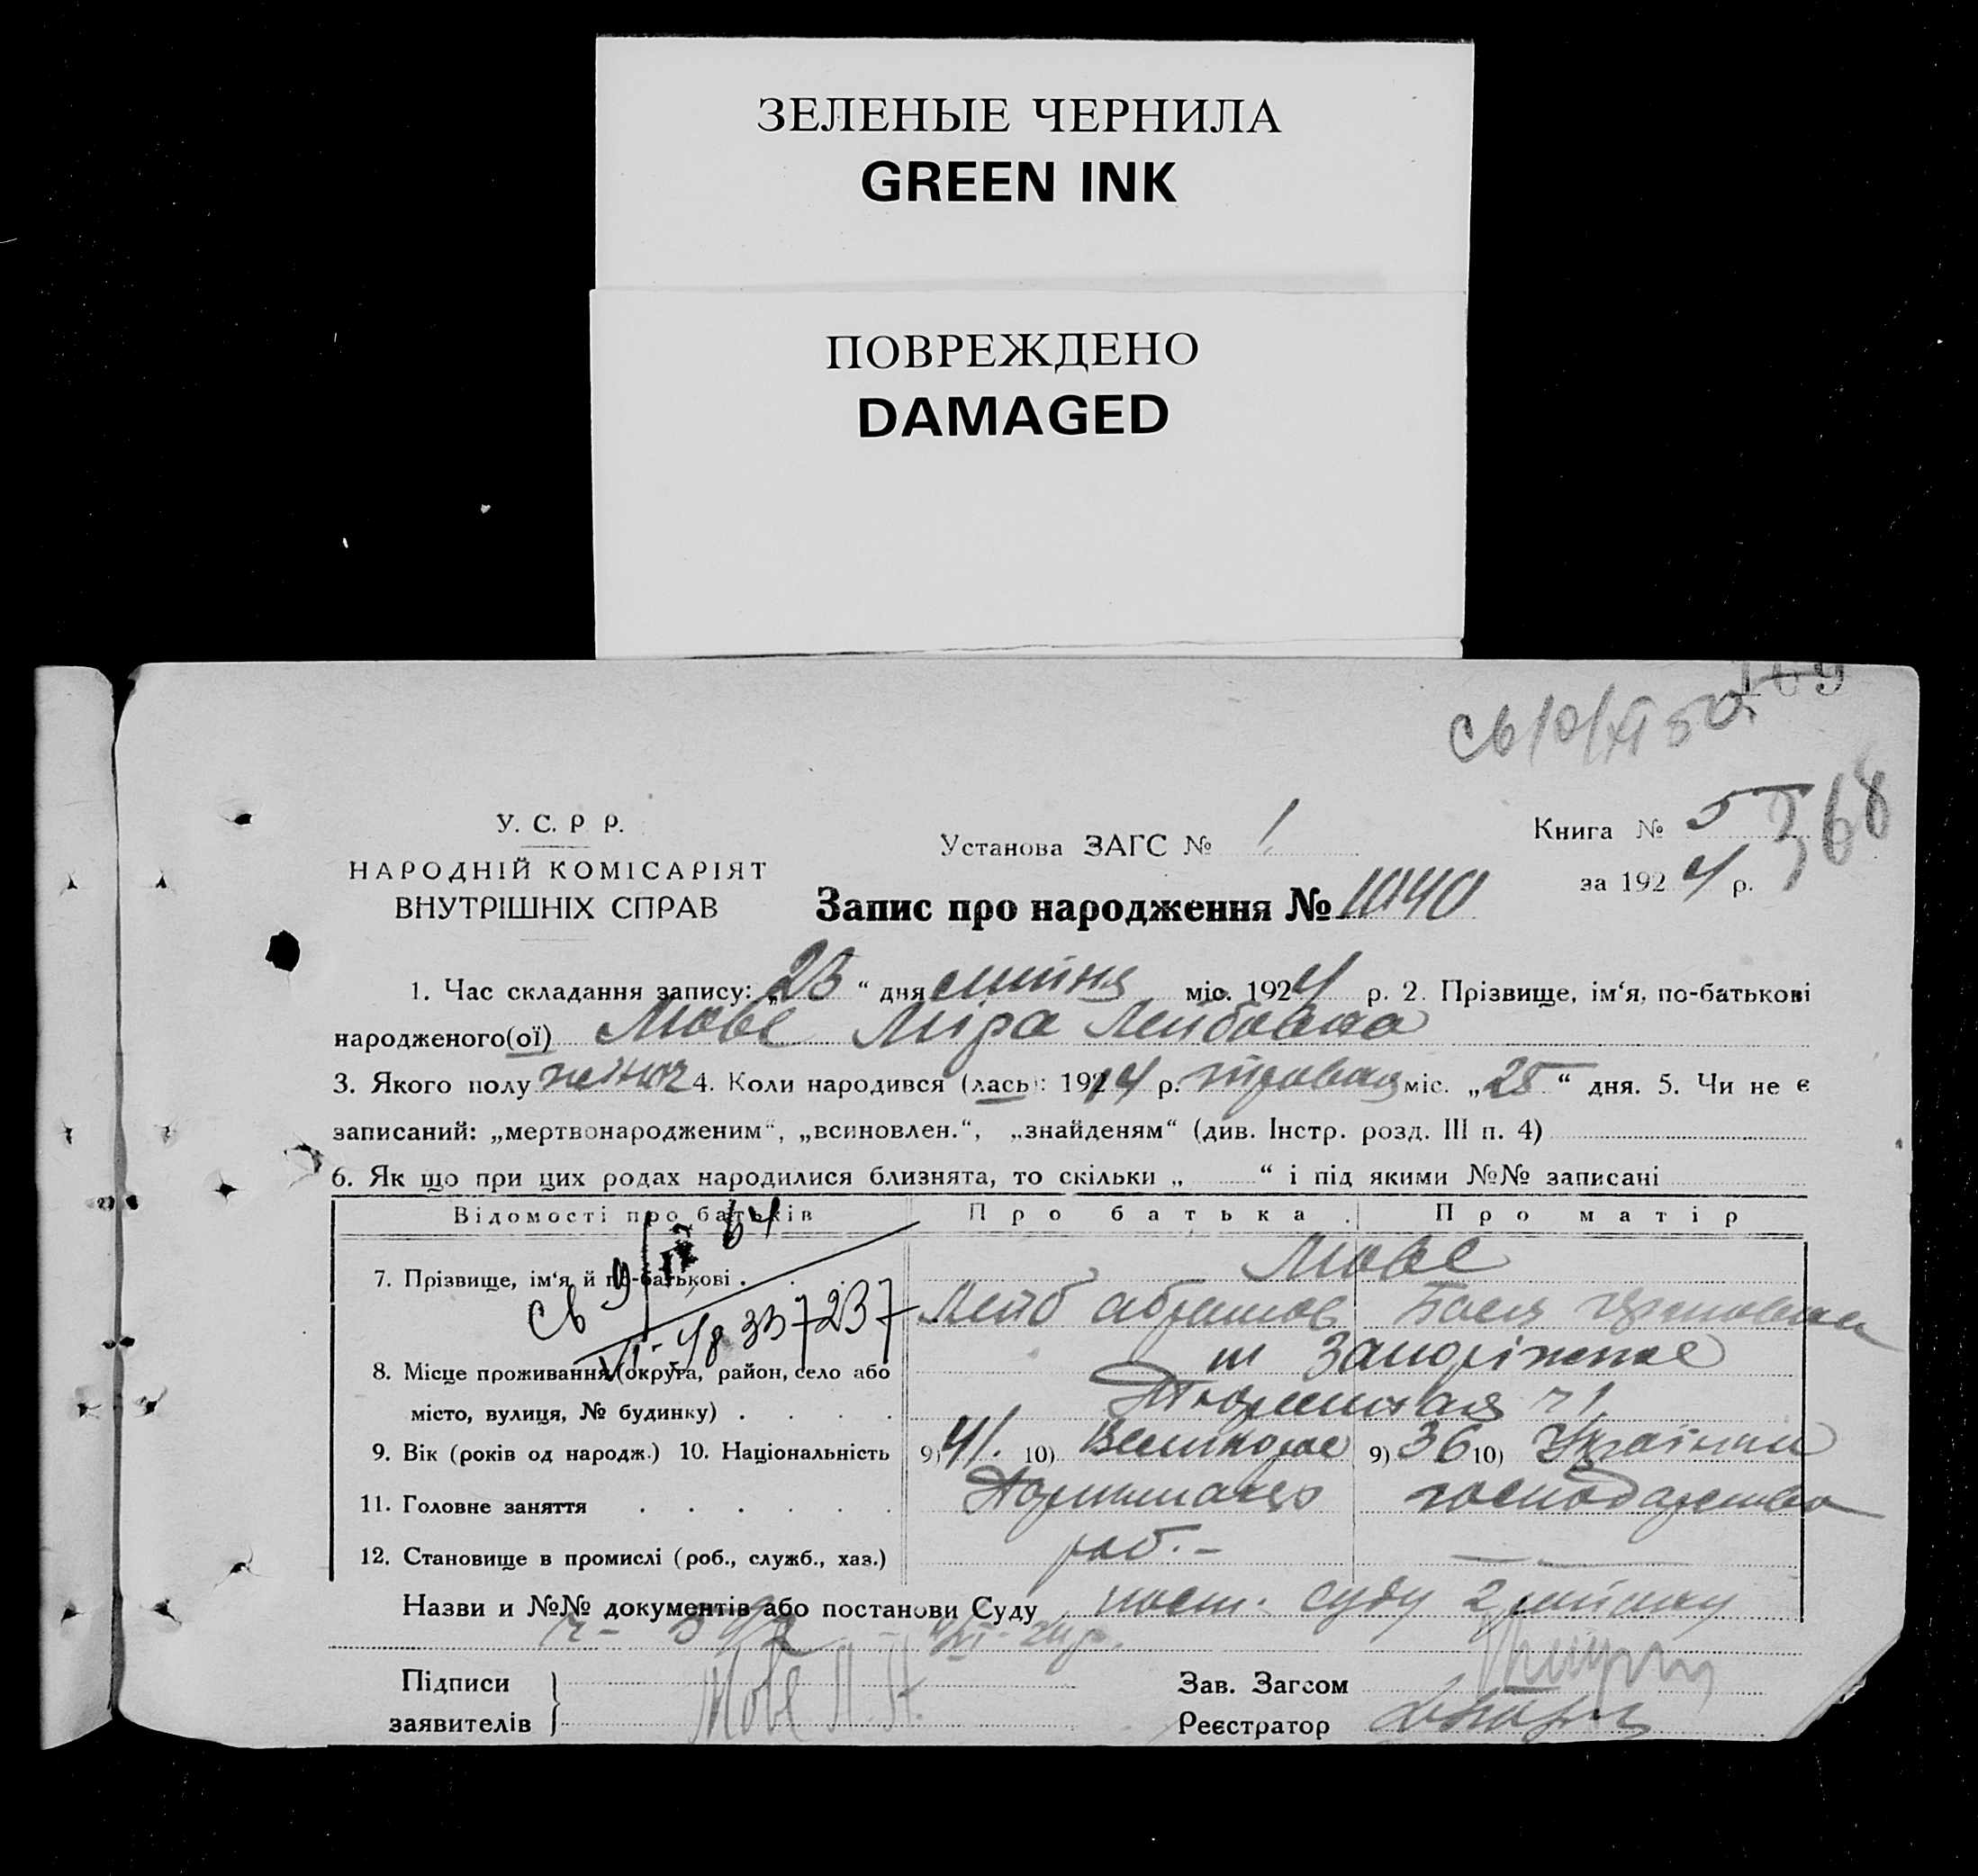 ЗЕЛЕНЫЕ ЧЕРНИЛА
GREEN INK
ПОВРЕЖДЕНО
DAMAGED
169
св 10/XI 50г.
368
У. С. Р Р.
НАРОДНІЙ КОМІСАРІЯТ
ВНУТРІШНІХ СПРАВ
Установа ЗАГС № 1
Книга № 5
за 1924 р.
Запис про народження № 1040
1. Час складання запису: „23“ дня липня міс. 1924 р. 2. Прізвище, ім‘я, по-батькові
народженого(ої) Мове Міра Лейбовна
3. Якого полу жіноч 4. Коли народився (лась): 1914 р. травня міс. „25“ дня. 5. Чи не є
записаний: „мертвонародженим“, „всиновлен.“, „знайденям“ (див. Інстр. розд. III п. 4)
6. Як що при цих родах народилися близнята, то скільки „ “ і під якими №№ записані
Відомості про батьків Про батька Про матір
7. Прізвище, ім‘я й по-батькові . . . Мове
Лейб Абрамов Бася
св 9/II 64
VI-ЧР 337237
8. Місце проживання (округа, район, село або м Запоріжжє
місто, вулиця, № будинку) . . . . ч 1
9. Вік (років од народж.) 10. Національність 9) 41. 10) 9) 36 10)
11. Головне заняття . . . . . . господарство
12. Становище в промислі (роб., служб., хаз.) роб. –
Назви и №№ документів або постанови Суду пост. суду 2
Підписи
заявителів
Мове Л. А.
Зав. Загсом
Реєстратор